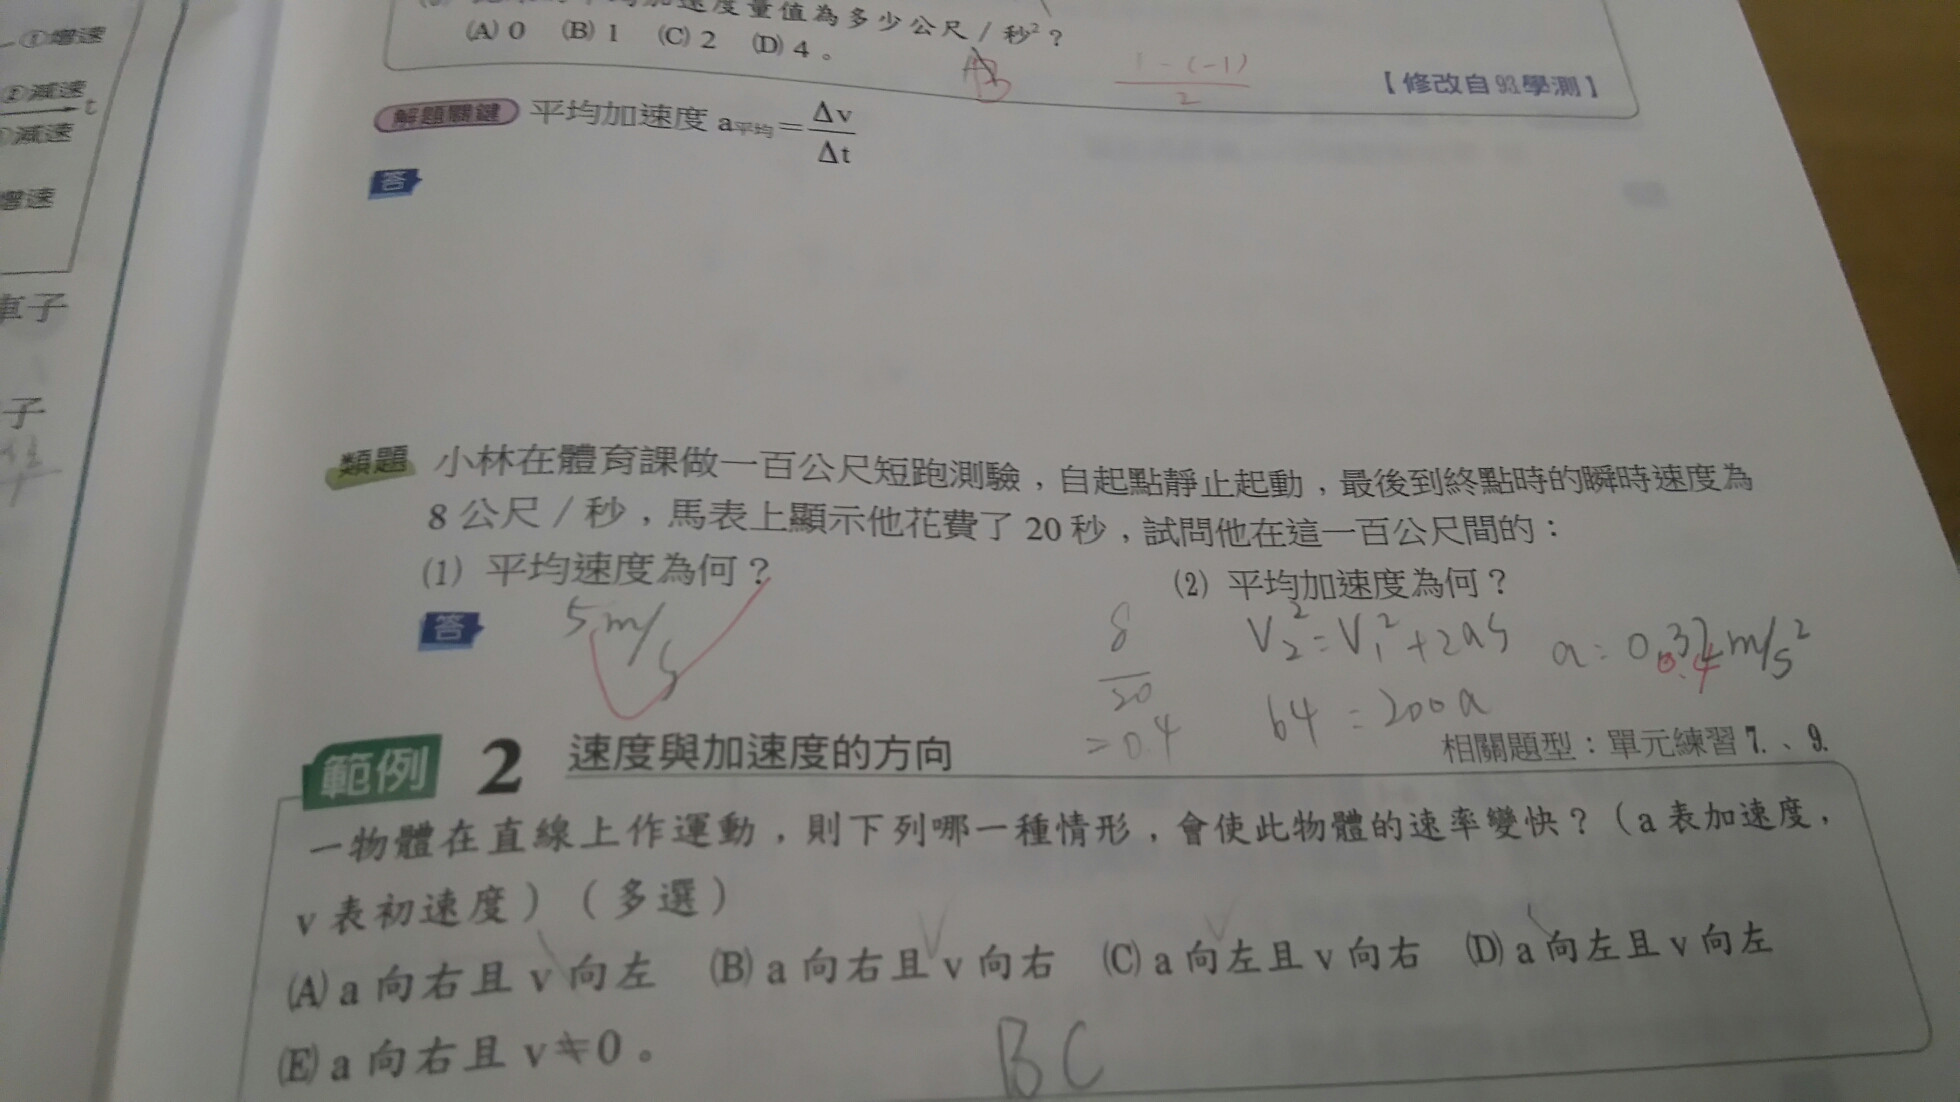 ①增速
②減速
t
減速
增速
車子
子
均加速度量值為多少公尺／秒²？
(A) 0 (B) 1 (C) 2 (D) 4 。
B
1-(-1)
2
【修改自93.學測】
解題關鍵 平均加速度 a平均＝Δv/Δt
答
類題 小林在體育課做一百公尺短跑測驗，自起點靜止起動，最後到終點時的瞬時速度為
8 公尺／秒，馬表上顯示他花費了 20 秒，試問他在這一百公尺間的：
(1) 平均速度為何？ (2) 平均加速度為何？
答 5m/s
8/20
=0.4
V₂²=V₁²+2aS
64=200a
a=0.32m/s²
0.4
範例 2 速度與加速度的方向
相關題型：單元練習 7.、9.
一物體在直線上作運動，則下列哪一種情形，會使此物體的速率變快？（a 表加速度，
v 表初速度）（多選）
(A) a 向右且 v 向左 (B) a 向右且 v 向右 (C) a 向左且 v 向右 (D) a 向左且 v 向左
(E) a 向右且 v≠0 。
BC